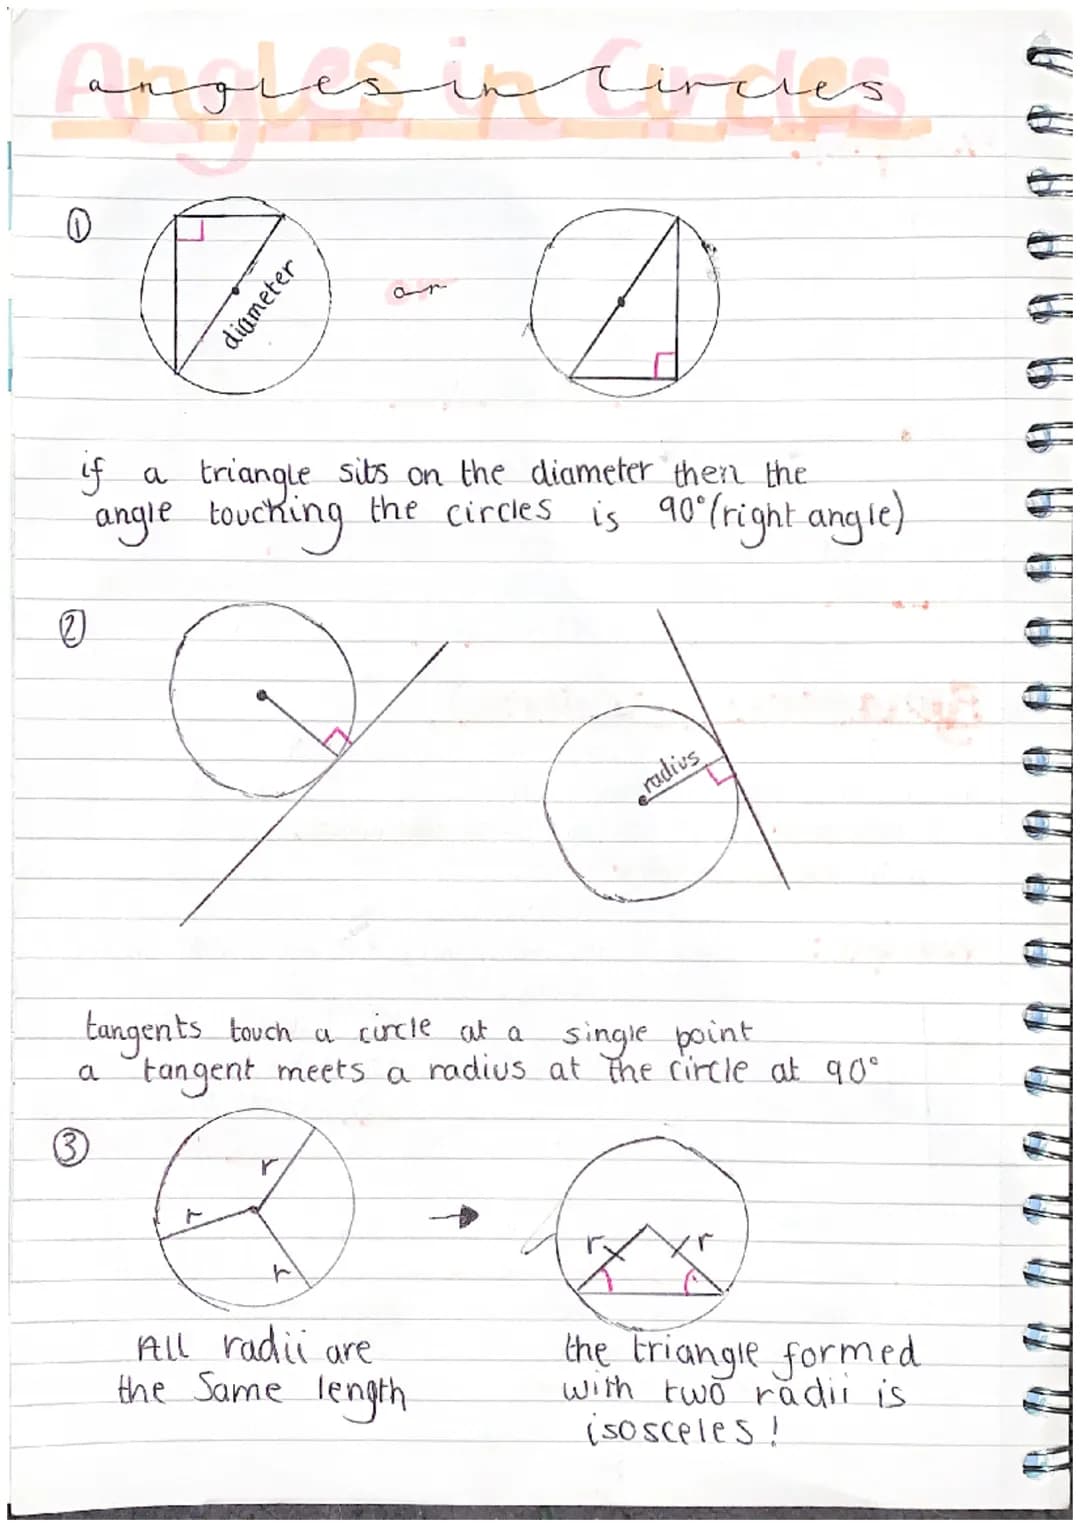 Angles in Circles
angles in Circles
①
diameter
or
if a triangle sits on the diameter then the
angle touching the circles is 90° (right angle)
②
radius
tangents touch a circle at a single point
a tangent meets a radius at the circle at 90°
③
r
r
r
r
r
All radii are
the Same length
the triangle formed
with two radii is
isosceles!